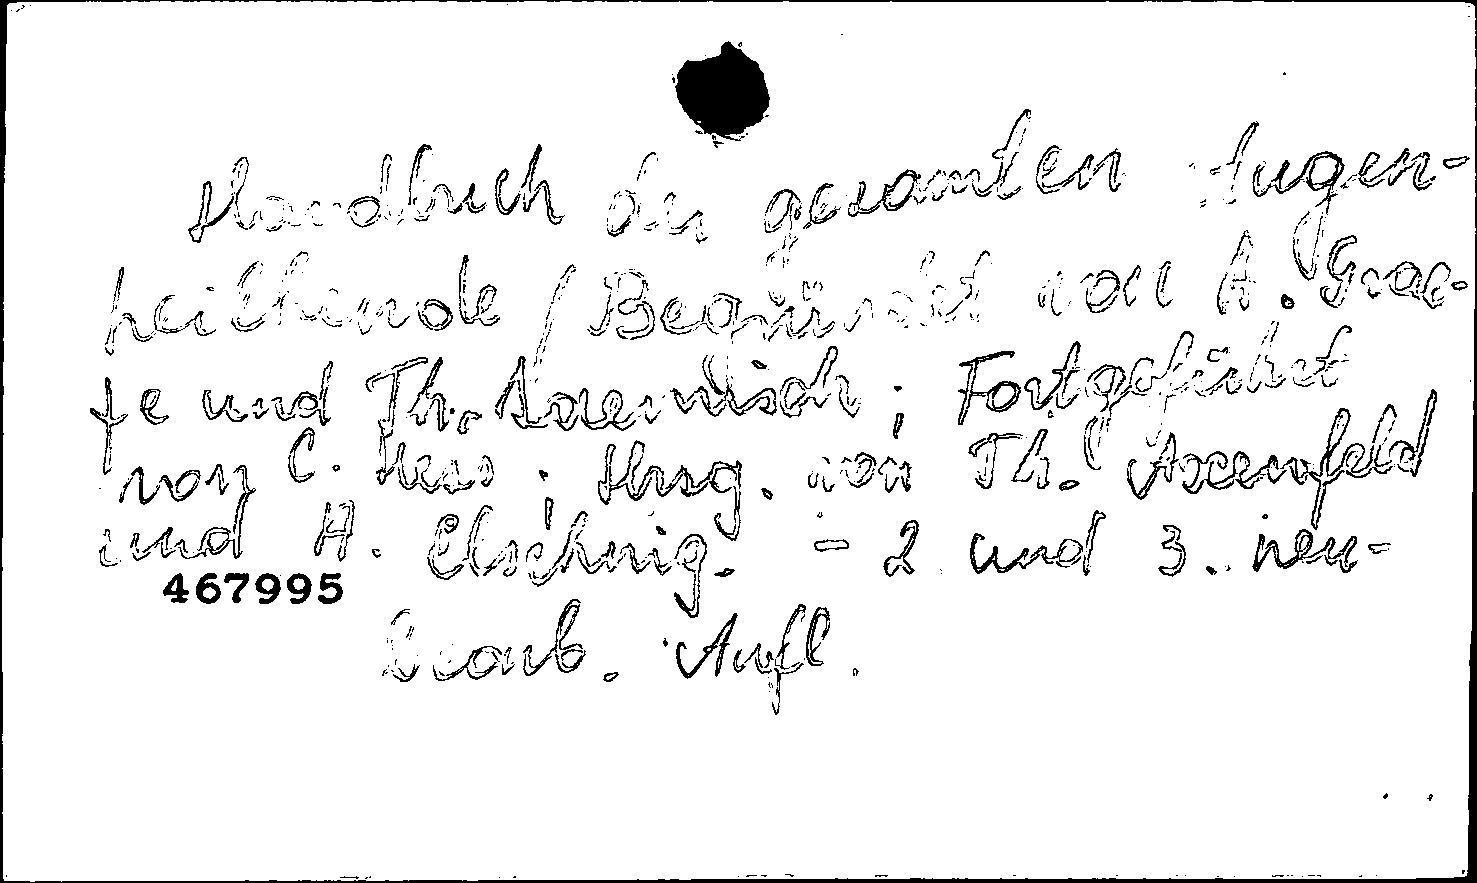 Handbuch der gesamten Augen-
heilkunde / Begründet von A. Grae-
fe und Th. Saemisch; Fortgeführt
von C. Hess; Hrsg. von Th. Axenfeld
und A. Elschnig. - 2 und 3. neu-
467995
bearb. Aufl.